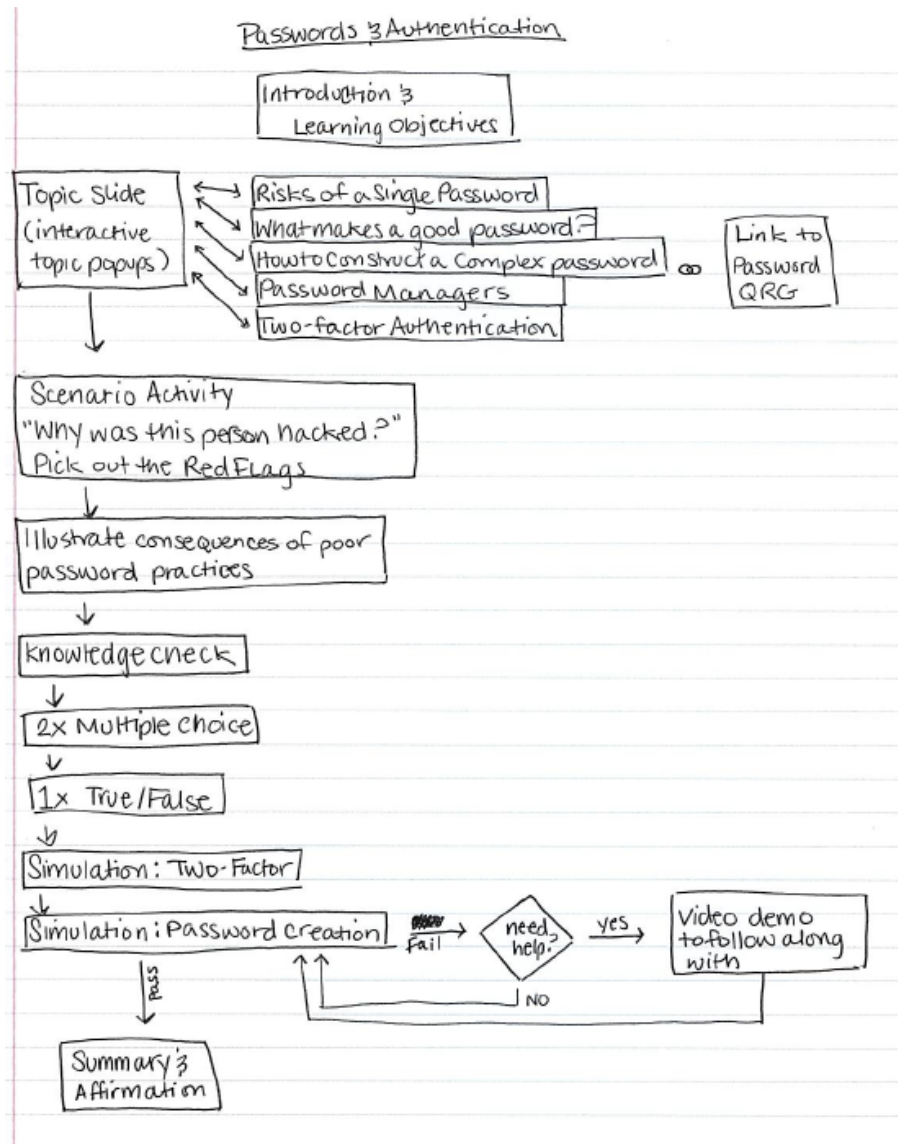 Passwords & Authentication
Introduction &
Learning Objectives
Topic Slide
(interactive
topic popups)
Risks of a Single Password
What makes a good password?
How to Construct a Complex password
Password Managers
Two-factor Authentication
Link to
Password
QRG
Scenario Activity
"Why was this person hacked?"
Pick out the Red Flags
Illustrate consequences of poor
password practices
Knowledge check
2x Multiple Choice
1x True/False
Simulation: Two-Factor
Simulation: Password Creation
Fail
need
help?
yes
Video demo
to follow along
with
NO
Pass
Summary &
Affirmation